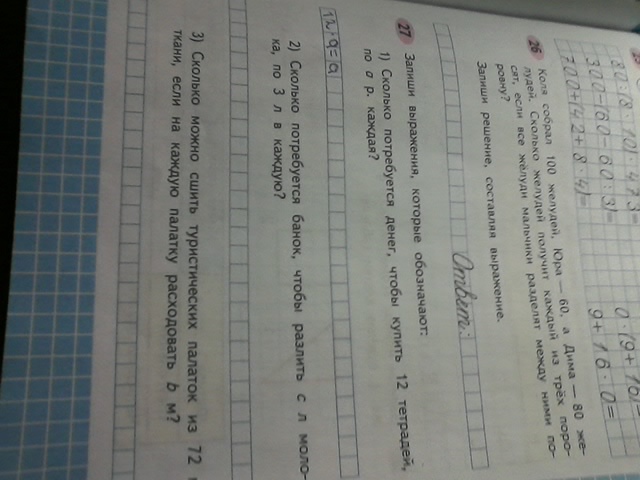 300-(60+60:3)=
700+(42+8·4)=
9+16·0=
26 Коля собрал 100 желудей, Юра — 60, а Дима — 80 же-
лудей. Сколько желудей получит каждый из трёх поро-
сят, если все жёлуди мальчики разделят между ними по-
ровну?
Запиши решение, составляя выражение.
Ответ:
27 Запиши выражения, которые обозначают:
1) Сколько потребуется денег, чтобы купить 12 тетрадей,
по a р. каждая?
2) Сколько потребуется банок, чтобы разлить с л моло-
ка, по 3 л в каждую?
3) Сколько можно сшить туристических палаток из 72
ткани, если на каждую палатку расходовать b м?